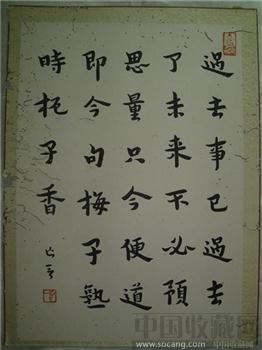 過去事已過去
了未来不必預
思量只今便道
即今句梅子熟
時栀子香
中国收藏网
www.socang.com 中国收藏网